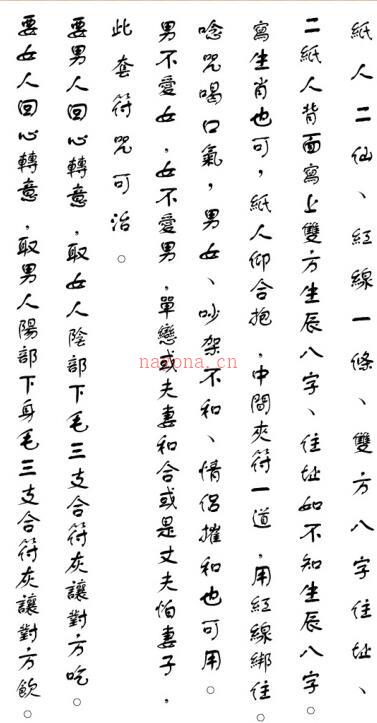 紙人二仙、紅線一條、雙方八字住址、
二紙人背面寫上雙方生辰八字、住址如不知生辰八字。
寫生肖也可，紙人仰合抱，中間夾符一道，用紅線綁住。
唸咒喝口氣，男女、吵架不和、情侶摧和也可用。
男不愛女，女不愛男，單戀或夫妻和合或是丈夫怕妻子，
此套符咒可治。
要男人回心轉意，取女人陰部下毛三支合符灰讓對方吃。
要女人回心轉意，取男人陽部下身毛三支合符灰讓對方飲。
nazona.cn